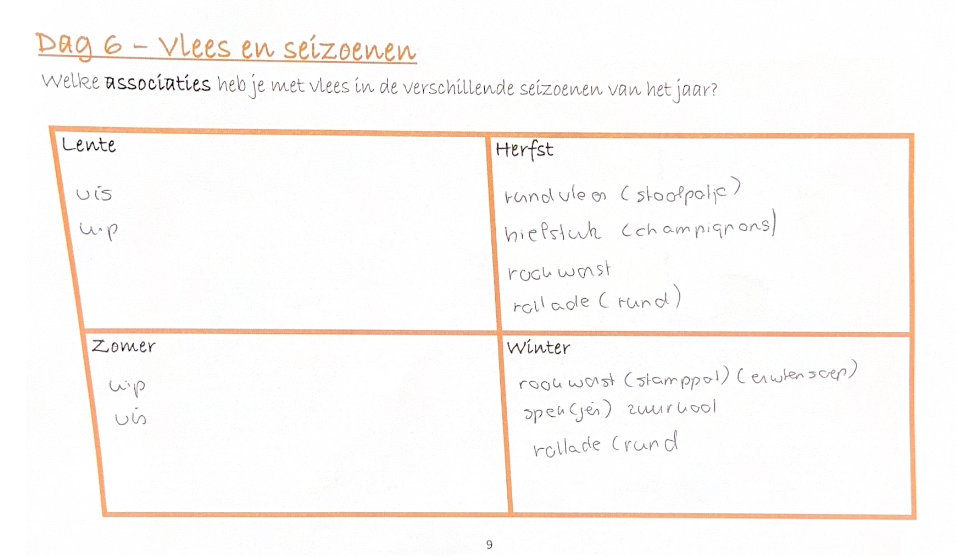 Dag 6 – Vlees en seizoenen
Welke associaties heb je met vlees in de verschillende seizoenen van het jaar?
Lente
vis
kip
Herfst
rundvlees (stoofpotje)
biefstuk (champignons)
rookworst
rollade (rund)
Zomer
kip
vis
Winter
rookworst (stamppot) (erwtensoep)
spek(jes) zuurkool
rollade (rund
9